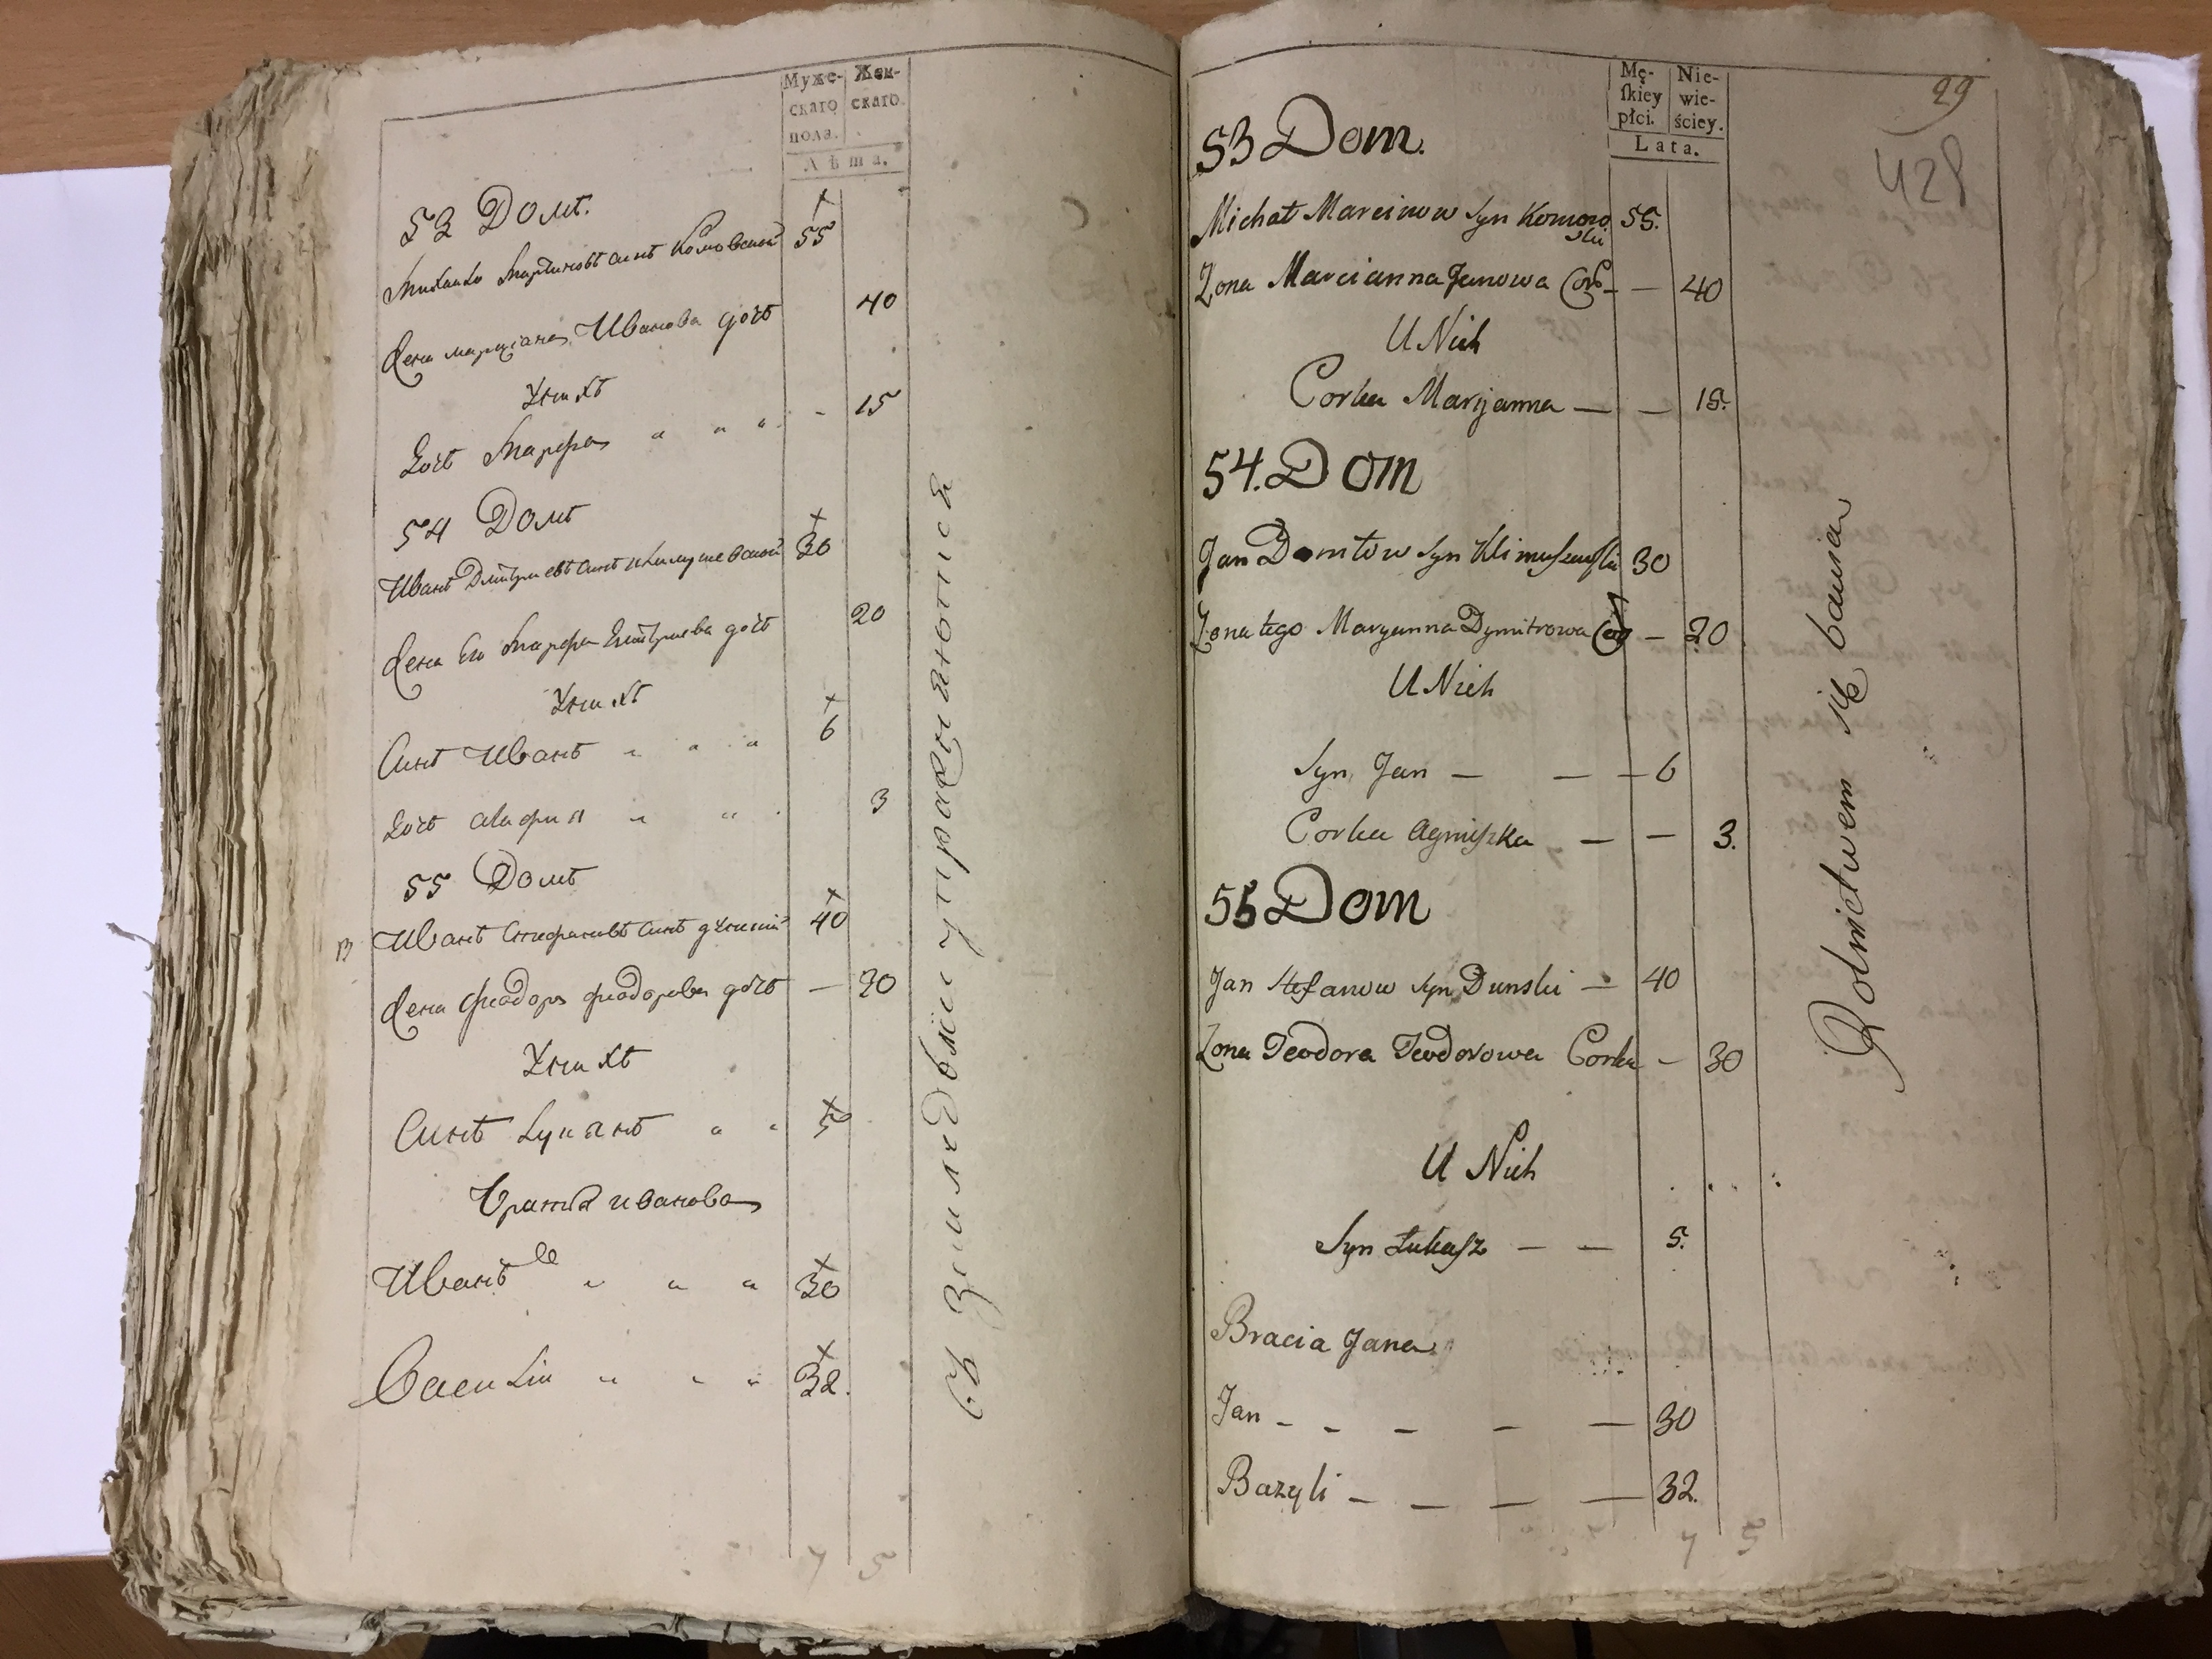 Муже-
скаго
пола.
Жен-
скаго.
Лѣта.
53 Домъ.
Михайло Мартиновъ синъ Комовский 55
Жена марціана Иванова дочъ 40
У них
Дочъ Марфа " " " - 15
54 Домъ
Иванъ Дмитриевъ синъ Климушевский 30
Жена Его Марфа Дмитриева дочъ 20
У них
Синъ Иванъ " " " 6
Дочъ " " 3
55 Домъ
Иванъ Стефановъ синъ дунский 40
Жена Феодора феодорова дочъ — 30
У них
Синъ Лукянъ " " 5
Братя иванова
Иванъ " " " 30
Василий " " " 32.
7 5
упражняются
Mę-
ſkiey
płci.
Nie-
wie-
ściey.
Lata.
29
428
53 Dom.
Michał Marcinow Syn Komow
ski 55.
Żona Marcianna Janowa Cor — 40
U Nich
Corka Maryanna — — 15.
54. Dom
Jan Domitow Syn Klimuszewski 30
Żona tego Maryanna Dymitrowa Cor — 20
U Nich
Syn Jan — — — 6
Corka Agniszka — — 3.
55 Dom
Jan Stefanow Syn Dunski — 40
Żona Teodora Teodorowa Corka — 30
U Nich
Syn Łukasz — — 5.
Bracia Jana
Jan - - — — — 30
Bazyli — — — — 32.
7 5
Rolnictwem się bawia